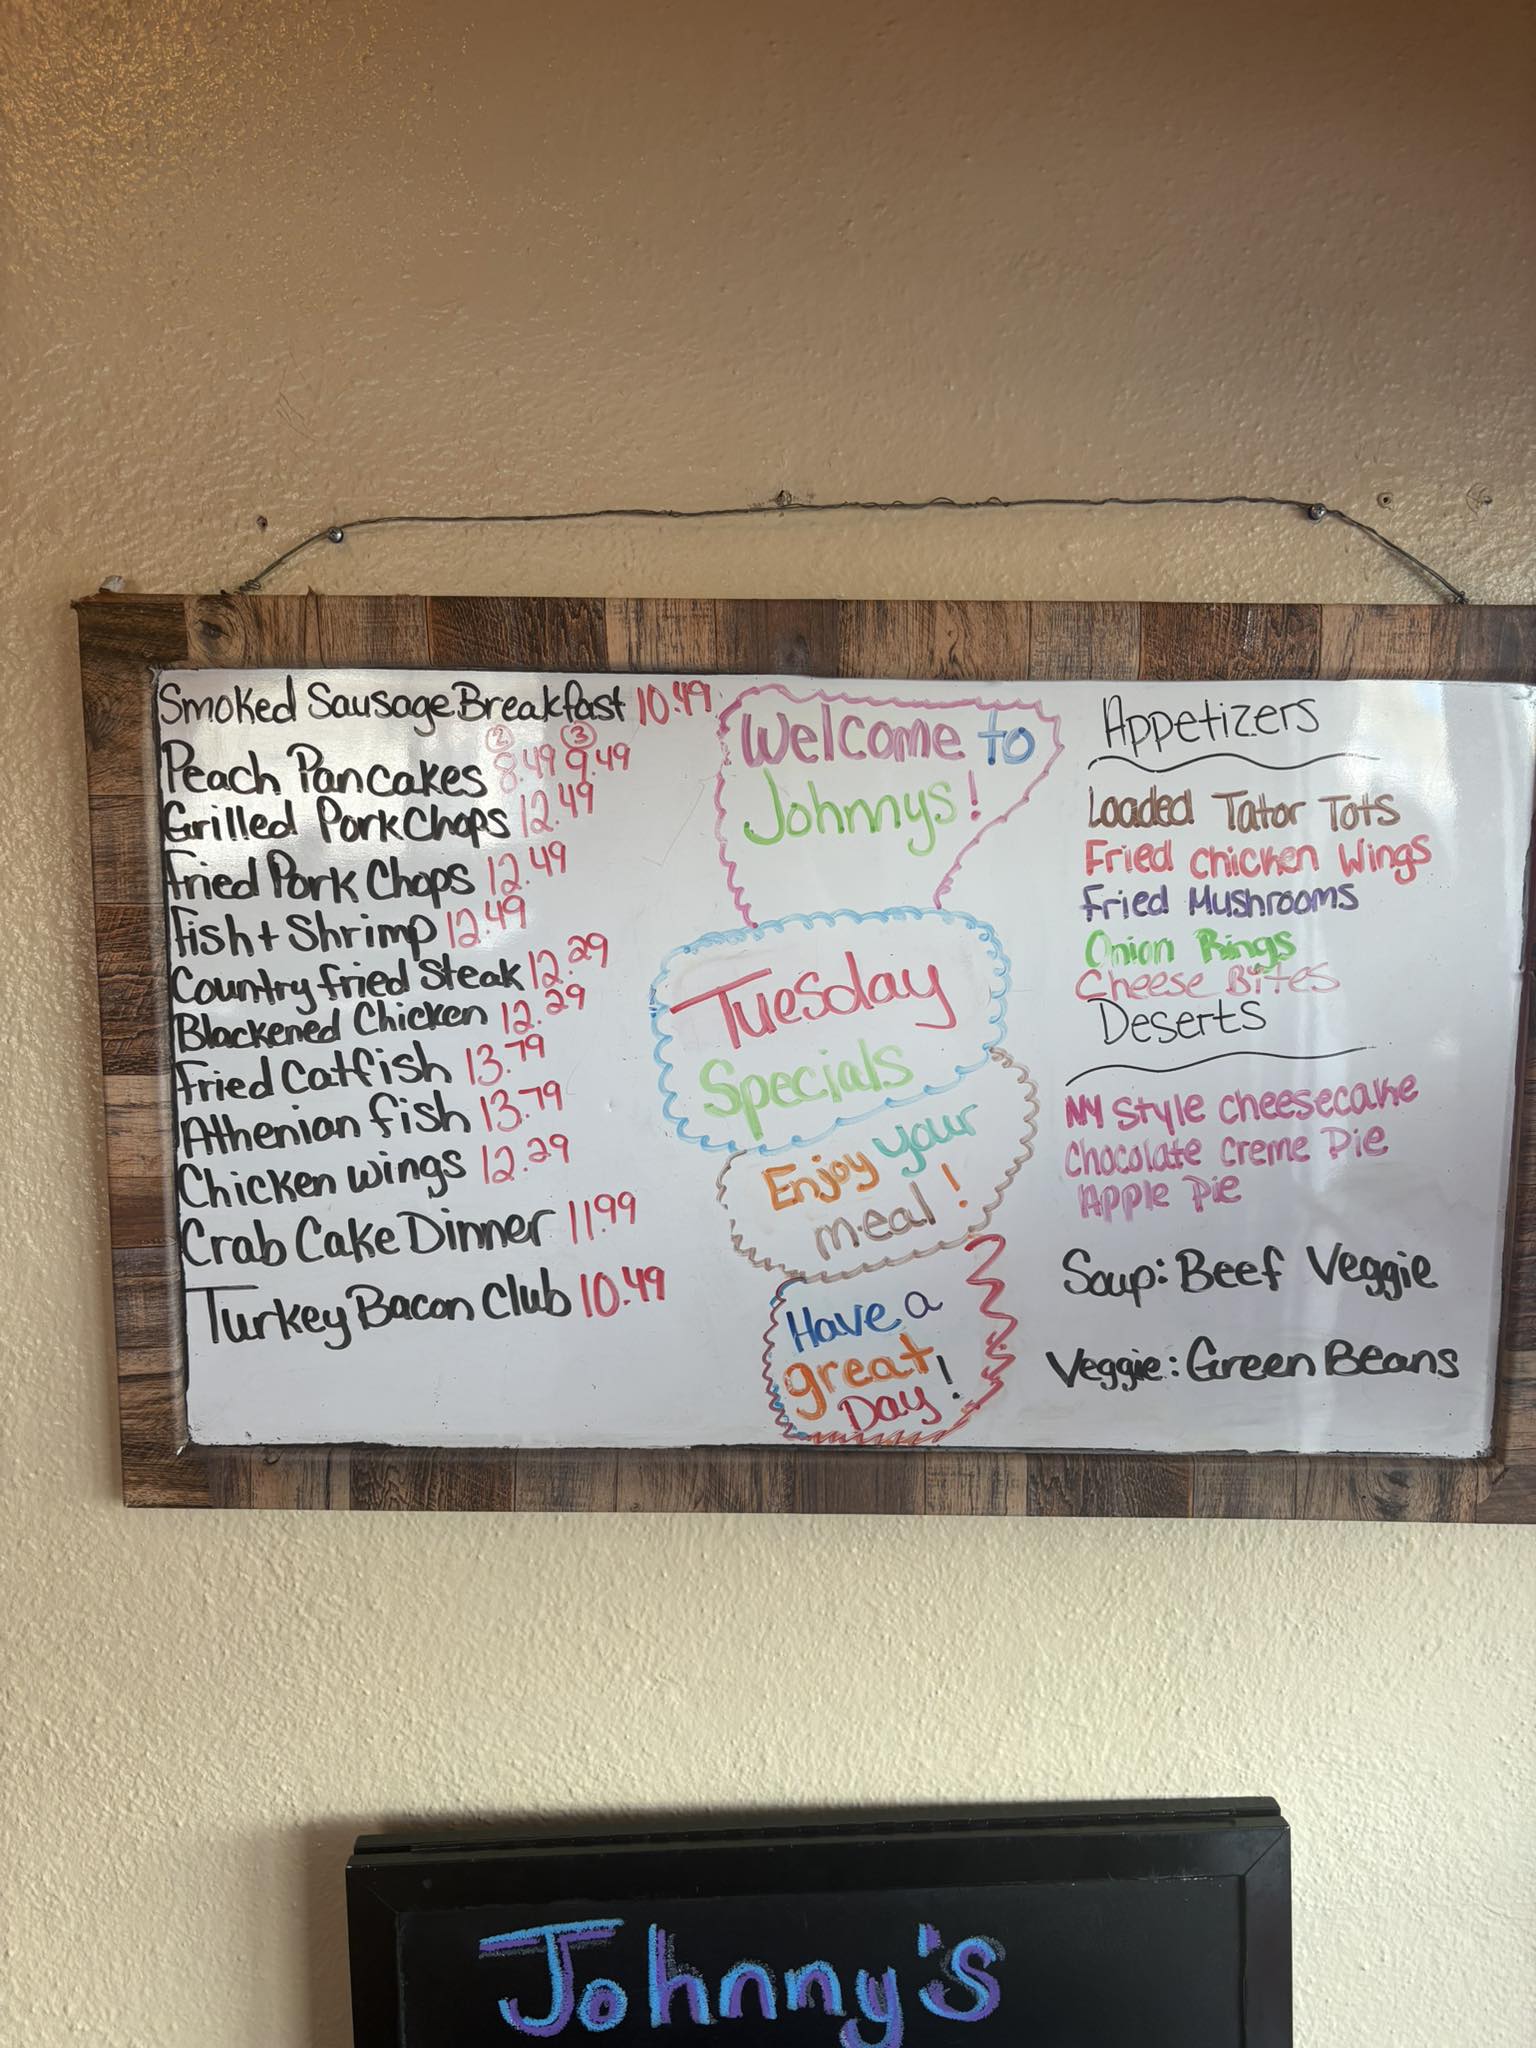 Smoked Sausage Breakfast 10.49
② ③
Peach Pancakes 8.49 9.49
Grilled Pork Chops 12.49
Fried Pork Chops 12.49
Fish + Shrimp 12.49
Country fried Steak 12.29
Blackened Chicken 12.29
Fried Catfish 13.79
Athenian fish 13.79
Chicken wings 12.29
Crab Cake Dinner 11.99
Turkey Bacon Club 10.49
Welcome to
Johnnys!
Tuesday
Specials
Enjoy your
meal!
Have a
great
Day!
Appetizers
Loaded Tator Tots
Fried Chicken Wings
Fried Mushrooms
Onion Rings
Cheese Bites
Deserts
NY Style Cheesecake
Chocolate Creme Pie
Apple Pie
Soup: Beef Veggie
Veggie: Green Beans
Johnny's